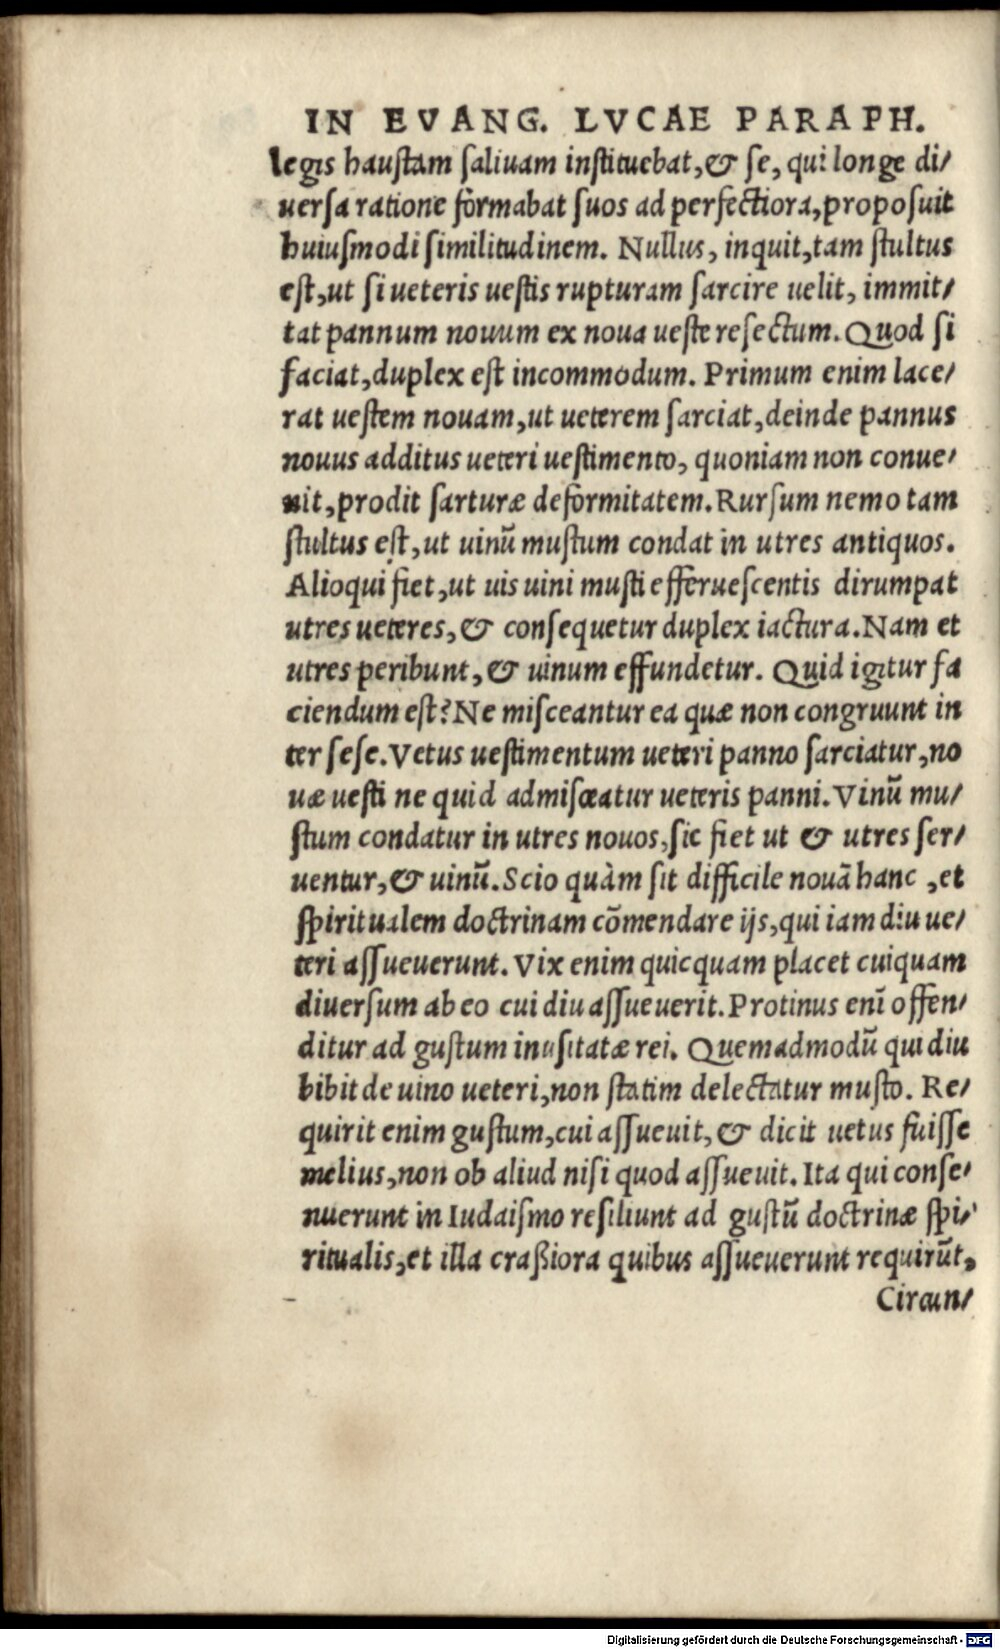 IN EVANG. LVCAE PARAPH.
legis haustam saliuam instituebat, & se, qui longe di/
uersa ratione formabat suos ad perfectiora, proposuit
huiusmodi similitudinem. Nullus, inquit, tam stultus
est, ut si ueteris uestis rupturam sarcire uelit, immit/
tat pannum nouum ex noua ueste resectum. Quod si
faciat, duplex est incommodum. Primum enim lace/
rat uestem nouam, ut ueterem sarciat, deinde pannus
nouus additus ueteri uestimento, quoniam non conue/
nit, prodit sarturæ deformitatem. Rursum nemo tam
stultus est, ut uinū mustum condat in utres antiquos.
Alioqui fiet, ut uis uini musti efferuescentis dirumpat
utres ueteres, & consequetur duplex iactura. Nam et
utres peribunt, & uinum effundetur. Quid igitur fa
ciendum est? Ne misceantur ea quæ non congruunt in
ter sese. Vetus uestimentum ueteri panno sarciatur, no
uæ uesti ne quid admisceatur ueteris panni. Vinū mu/
stum condatur in utres nouos, sic fiet ut & utres ser/
uentur, & uinū. Scio quàm sit difficile nouā hanc, et
spiritualem doctrinam cōmendare ijs, qui iam diu ue/
teri assueuerunt. Vix enim quicquam placet cuiquam
diuersum ab eo cui diu assueuerit. Protinus enī offen/
ditur ad gustum inusitatæ rei. Quemadmodū qui diu
bibit de uino ueteri, non statim delectatur musto. Re/
quirit enim gustum, cui assueuit, & dicit uetus fuisse
melius, non ob aliud nisi quod assueuit. Ita qui conse/
nuerunt in Iudaismo resiliunt ad gustū doctrinæ spi/
ritualis, et illa craßiora quibus assueuerunt requirūt,
Circun/
Digitalisierung gefördert durch die Deutsche Forschungsgemeinschaft - DFG